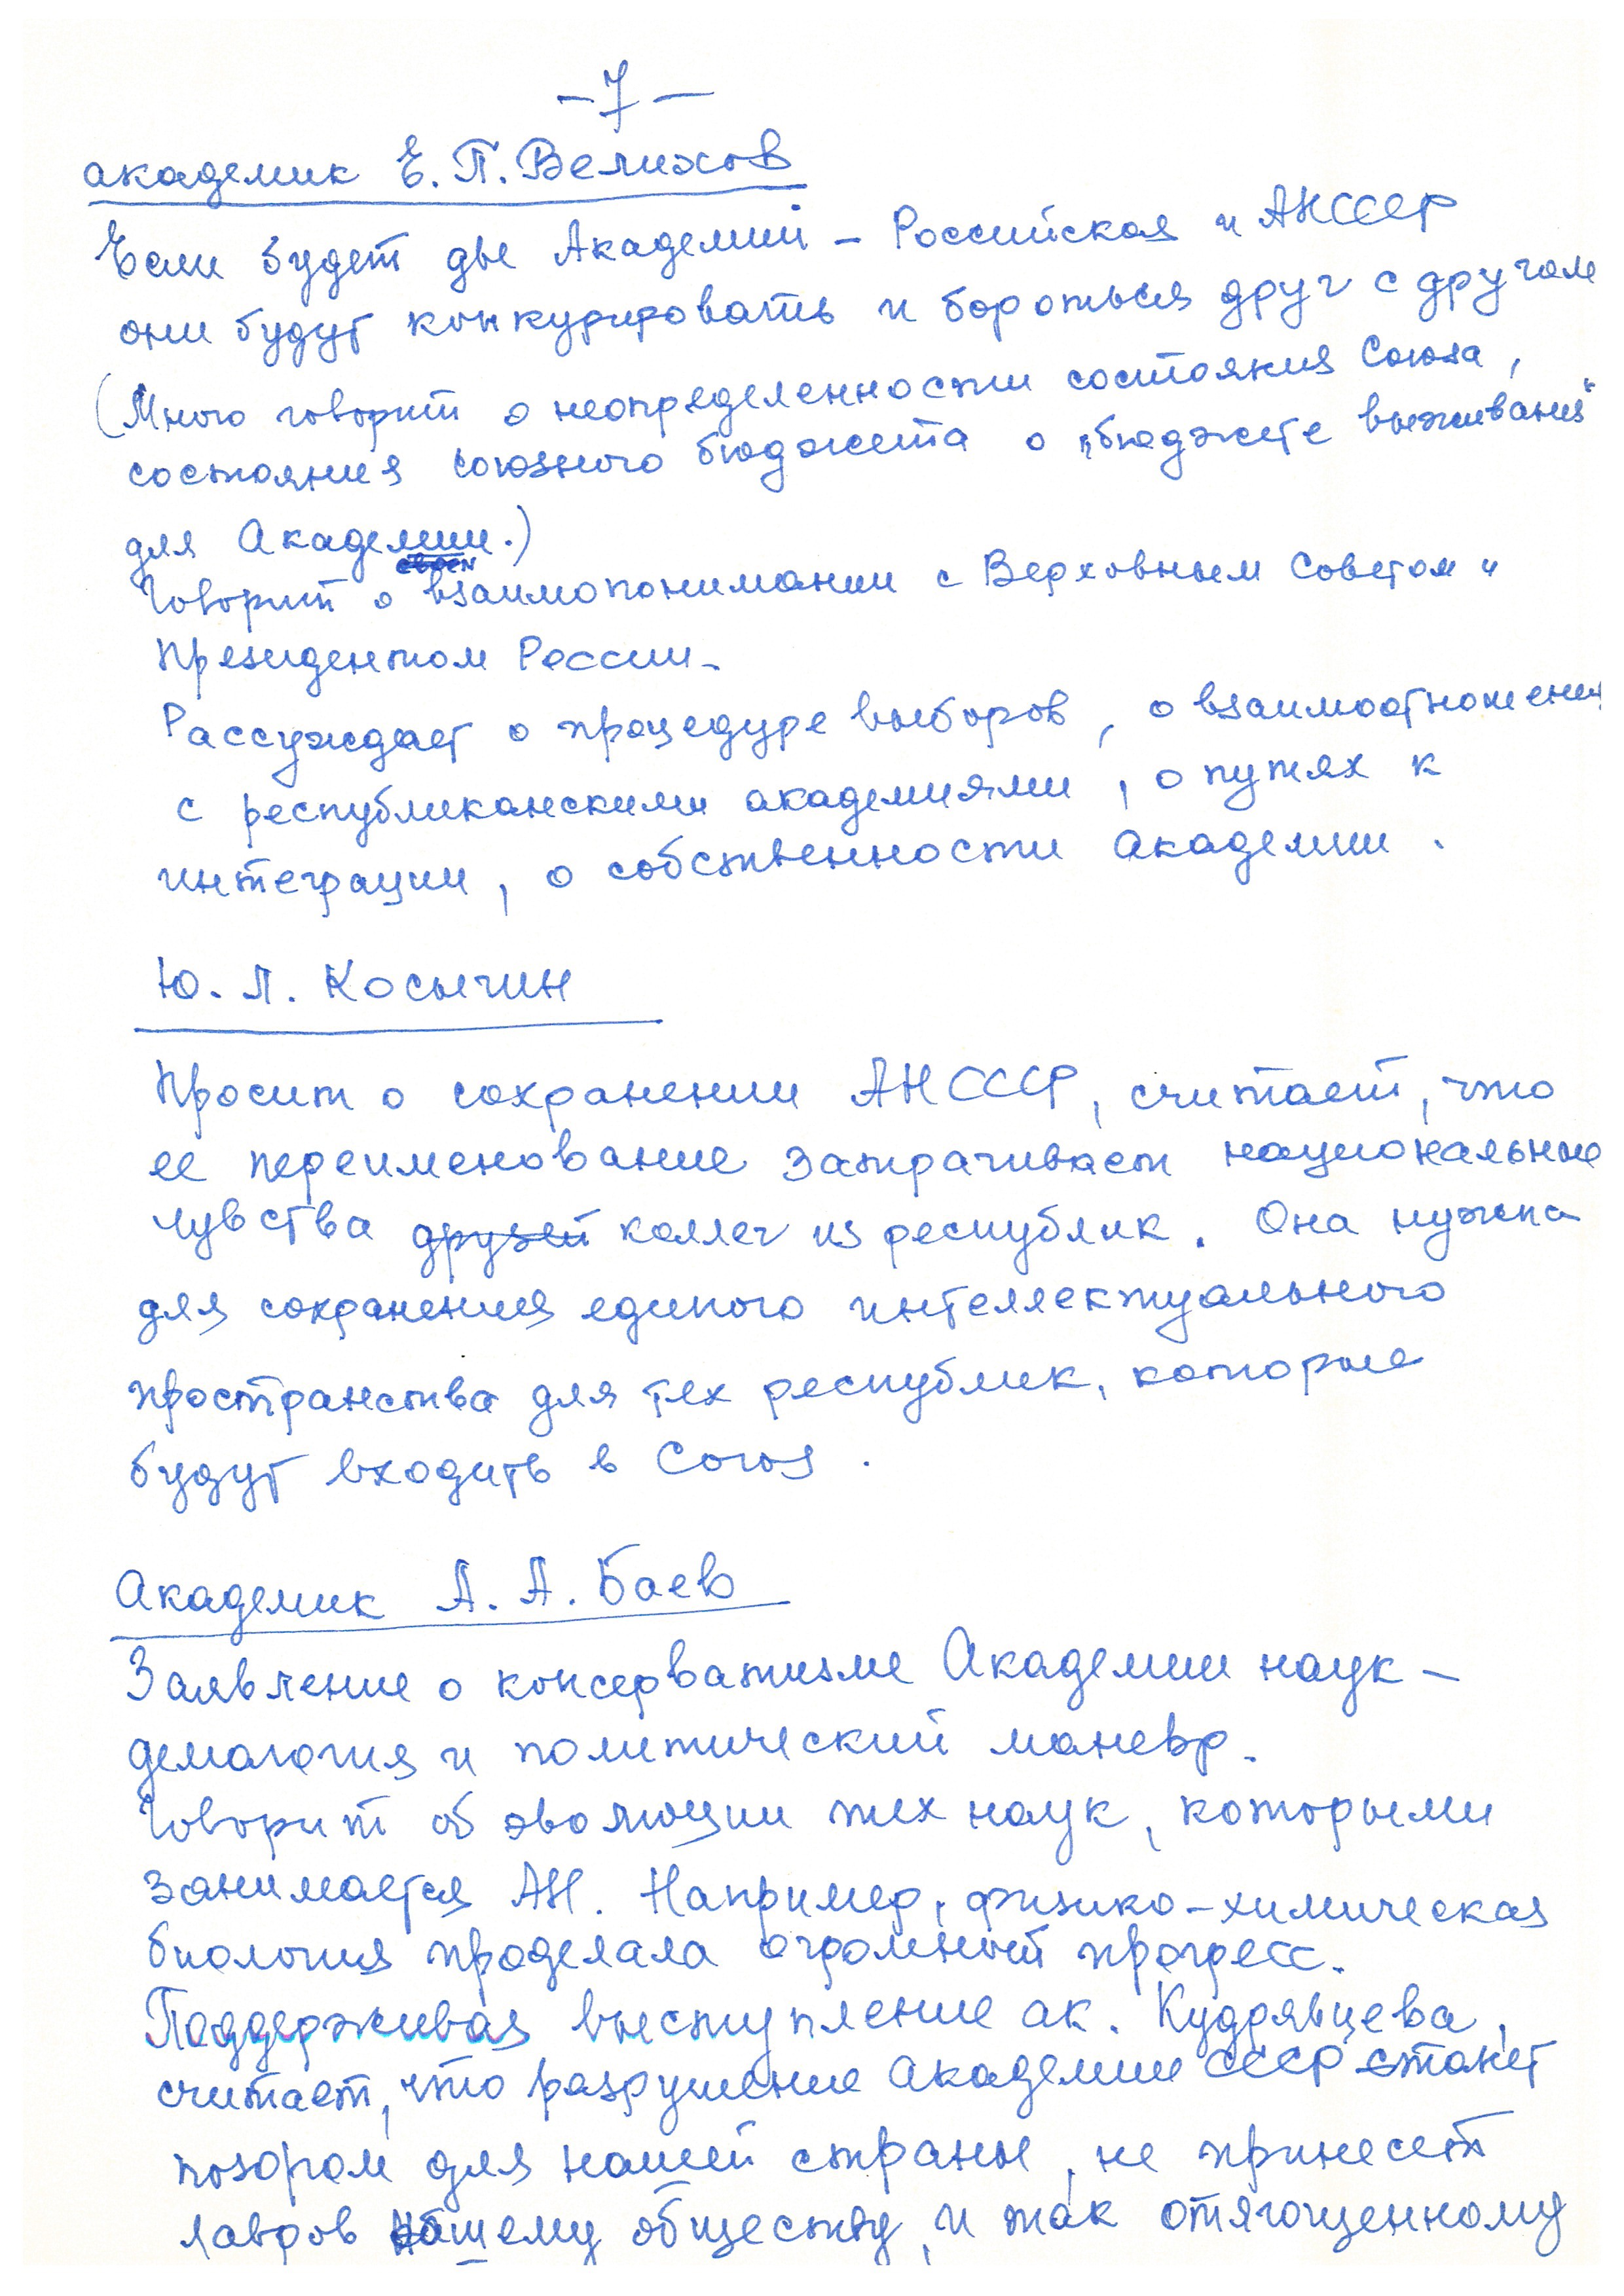 -7-
академик Е.П.Велихов
Если будет две Академии - Российская и АНСССР
они будут конкурировать и бороться друг с другом
(Много говорит о неопределенности состояния Союза,
состояния союзного бюджета о "бюджете выживания"
для Академии.)
Говорит о взаимопонимании с Верховным Советом и
Президентом России.
Рассуждает о процедуре выборов, о взаимоотношении
с республиканскими академиями, о путях к
интеграции, о собственности Академии.
Ю. А. Косыгин
Просит о сохранении АН СССР, считает, что
ее переименование затрагивает национальные
чувства друзей коллег из республик. Она нужна
для сохранения единого интеллектуального
пространства для тех республик, которые
будут входить в Союз.
Академик А. А. Баев
Заявление о консерватизме Академии наук -
демагогия и политический маневр.
Говорит об эволюции тех наук, которыми
занимается АН. Например, физико-химическая
биология проделала огромный прогресс.
Поддерживая выступление ак. Кудрявцева,
считает, что разрушение Академии СССР станет
позором для нашей страны, не принесет
лавров нашему обществу, и так отягощенному